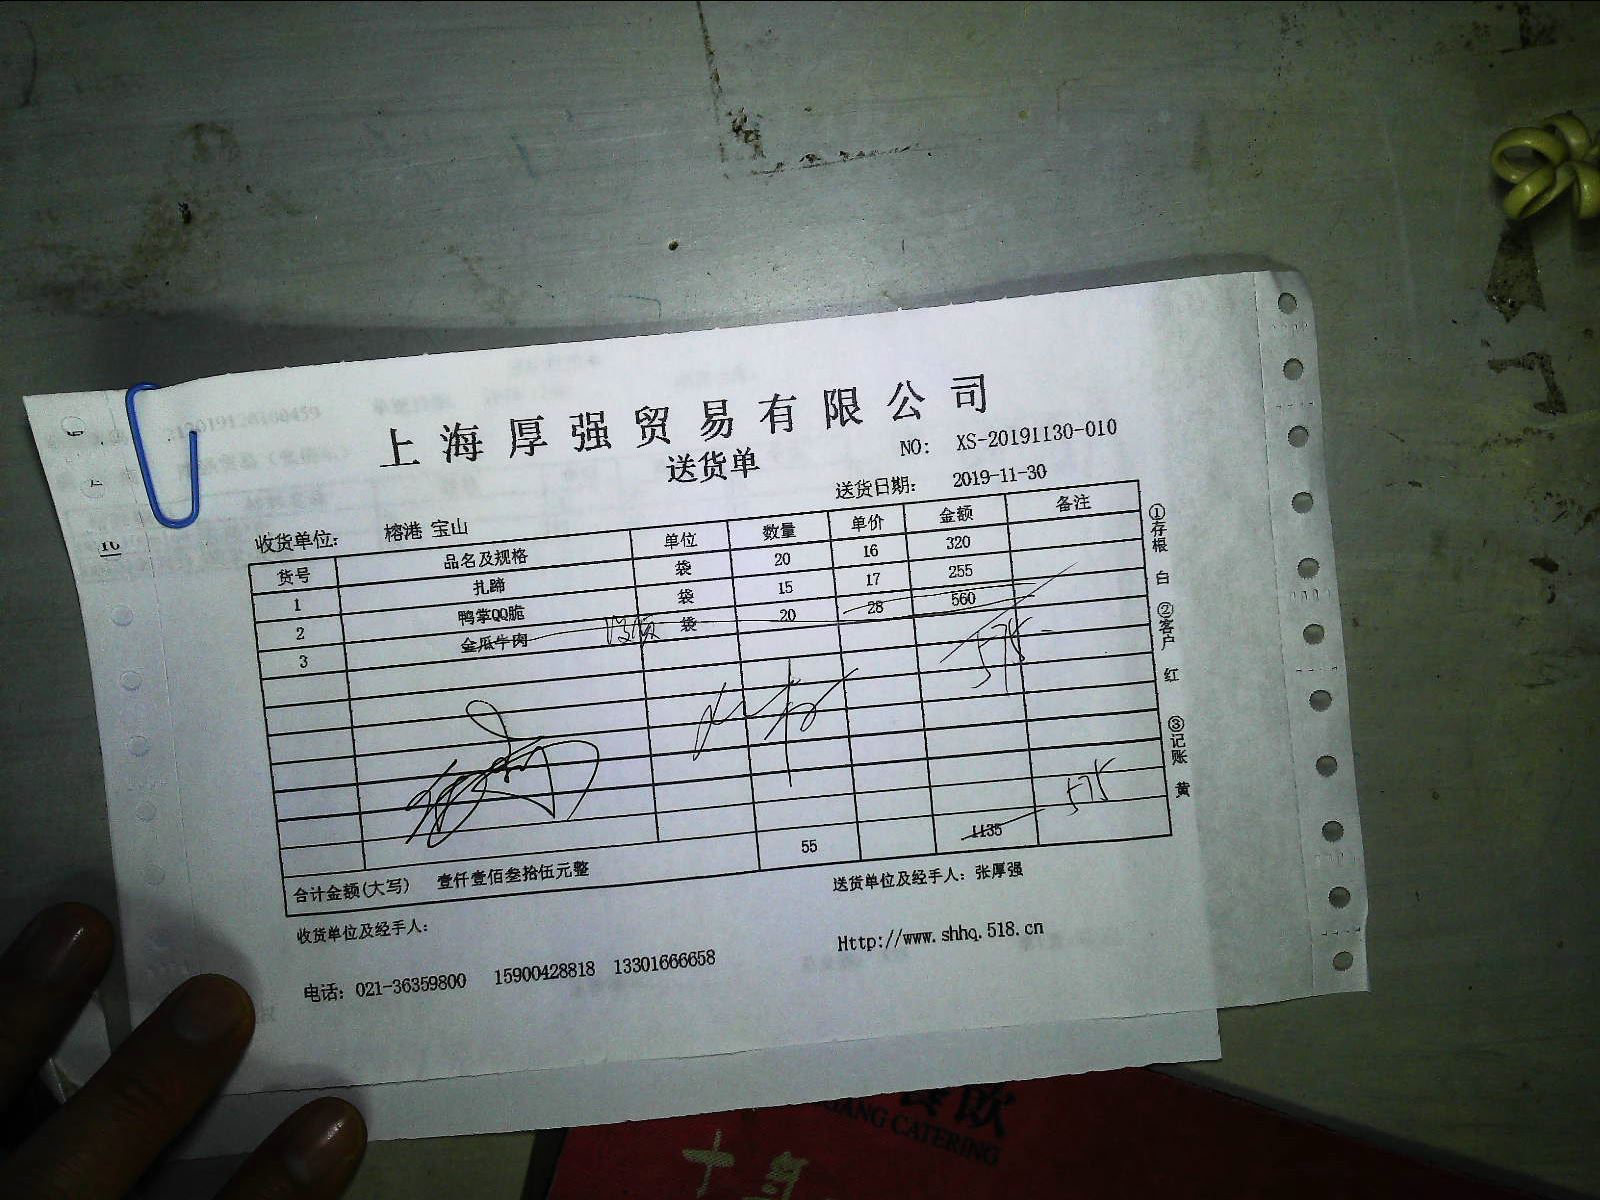 上海厚强贸易有限公司
送货单
NO: XS-20191130-010
送货日期: 2019-11-30
收货单位: 榕港 宝山
货号 品名及规格 单位 数量 单价 金额 备注
1 扎蹄 袋 20 16 320
2 鸭掌QQ脆 袋 15 17 255
3 金瓜牛肉 袋 20 28 560
575
575
55 1135
合计金额(大写) 壹仟壹佰叁拾伍元整
收货单位及经手人:
送货单位及经手人: 张厚强
电话: 021-36359800 15900428818 13301666658
Http://www.shhq.518.cn
①存根 白 ②客户 红 ③记账 黄
16
CATERING